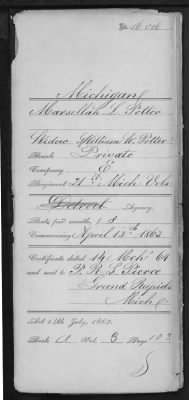 No. 16 016
Michigan
Marsellah L Potter
Widow Milburn W. Potter
Rank Private
Company E
Regiment 21st Mich Vols
Detroit Agency.
Rate per month, $ 8
Commencing April 13th 1863
Certificate dated 14 Mch 64
and sent to P. R. L. Pierce
Grand Rapids
Mich
Act 14th July, 1862.
Book A Vol. B Page 103